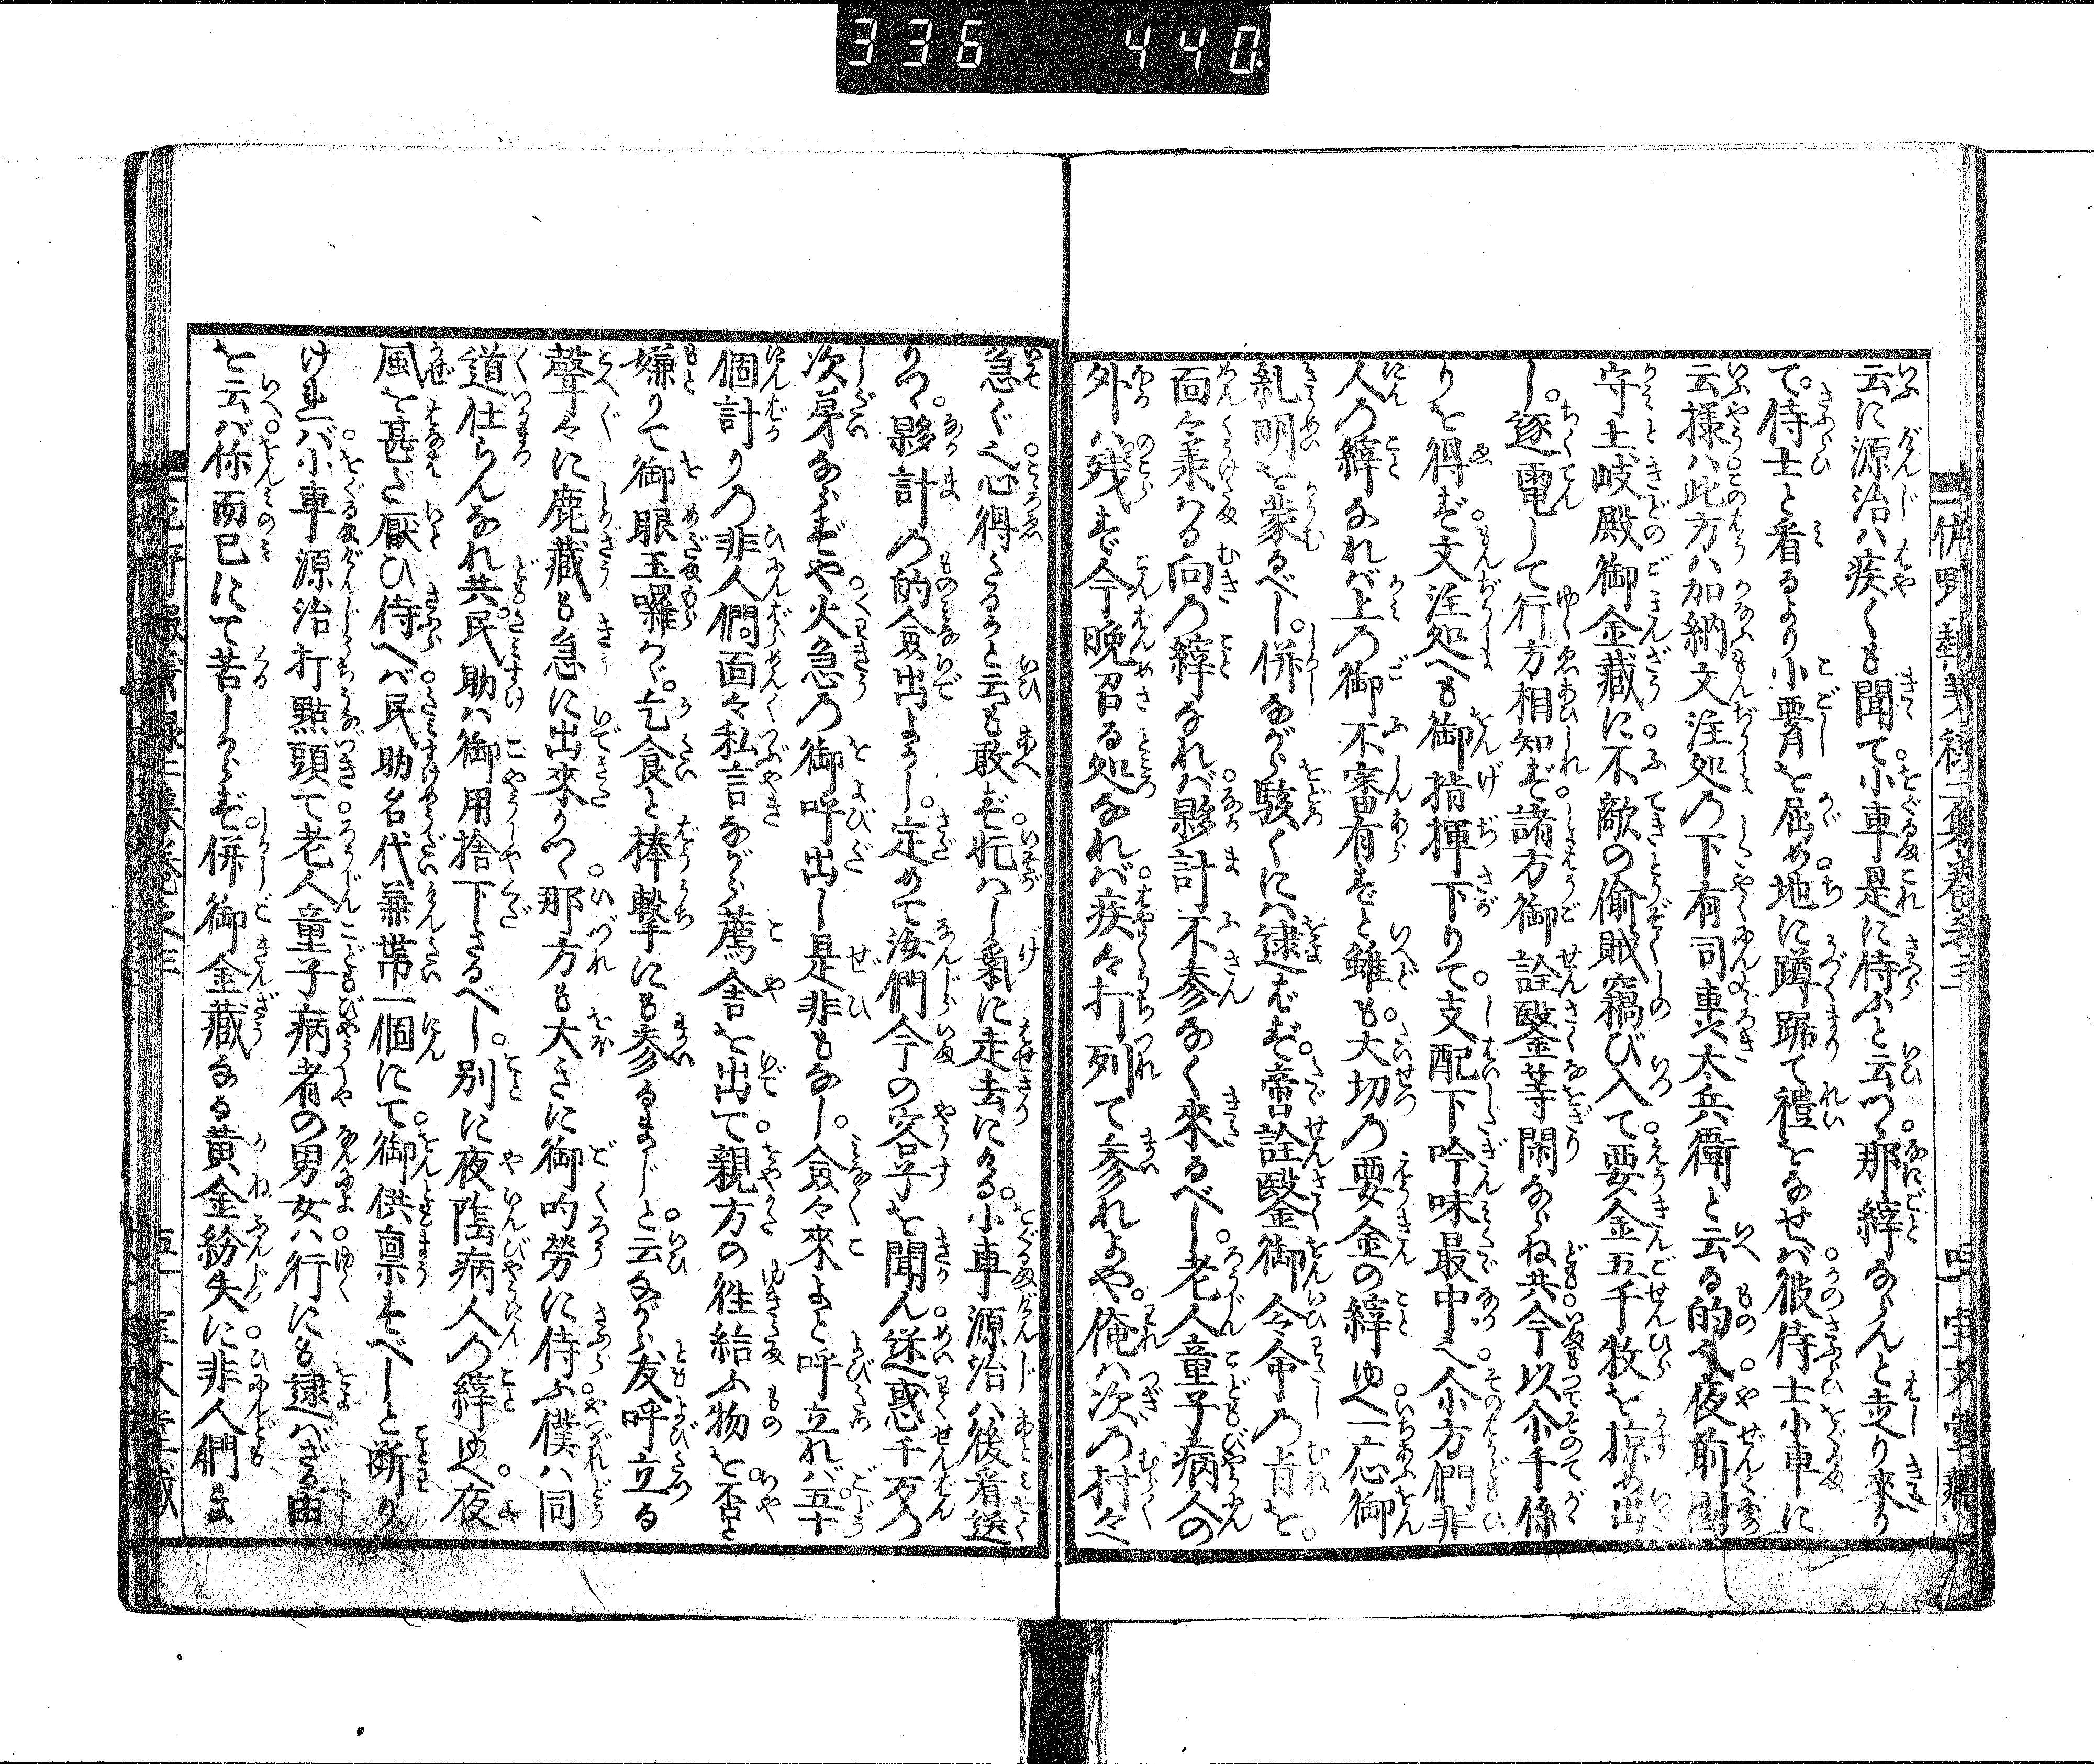 336 440
云に源治ハ疾くも聞て小車是に侍ふと云つゝ那縡ならんと走り來り
て侍士と看るより小膂を屈め地に蹲踞て禮をなせバ彼侍士小車に
云様ハ此方ハ加納文注処の下有司車次太兵衛と云る的也夜前國
守土岐殿御金藏に不敵の偷賊竊び入て要金五千牧を掠め出
し逐電して行方相知ず諸方御詮鑿等閑ならね共今以尒手係
りを得ず文注処へも御指揮下りて支配下吟味最中也尒方們非
人の縡なれバ上の御不審有ずと雖も大切の要金の縡ゆへ一応御
糺明を蒙るべし併ながら駭くにハ逮ばず啻詮鑿御今命の旨を
面々美る向の縡なれバ夥計不参なく來るべし老人童子病人の
外ハ残ず今晩召る処なれバ疾々打列て参れよや俺ハ次の村々へ
急ぐ也心得たるかと云も敢ず忙ハし氣に走去にける小車源治ハ後看送
りつゝ夥計の的僉出よかし定めて汝們今の容子を聞ん迷惑千万の
次苐ならずや火急の御呼出し是非もなし僉々來よと呼立れバ五十
個計りの非人們面々私言ながら薦舎を出て親方の徃給ふ物を否と
嫌りて御眼玉囉ハゞ乞食と棒擊にも参るまじと云ながら友呼立る
聲々に鹿藏も急に出來りつゝ那方も大きに御叻勞に侍ふ僕ハ同
道仕らんなれ共民助ハ御用捨下さるべし別に夜陰病人の縡ゆへ夜
風を甚だ厭ひ侍へバ民助名代兼帶一個にて御供禀すべしと断り
けれバ小車源治打點頭て老人童子病者の男女ハ行にも逮バざる由
を云バ你而已にて苦しからず併御金藏なる黄金紛失に非人們ま